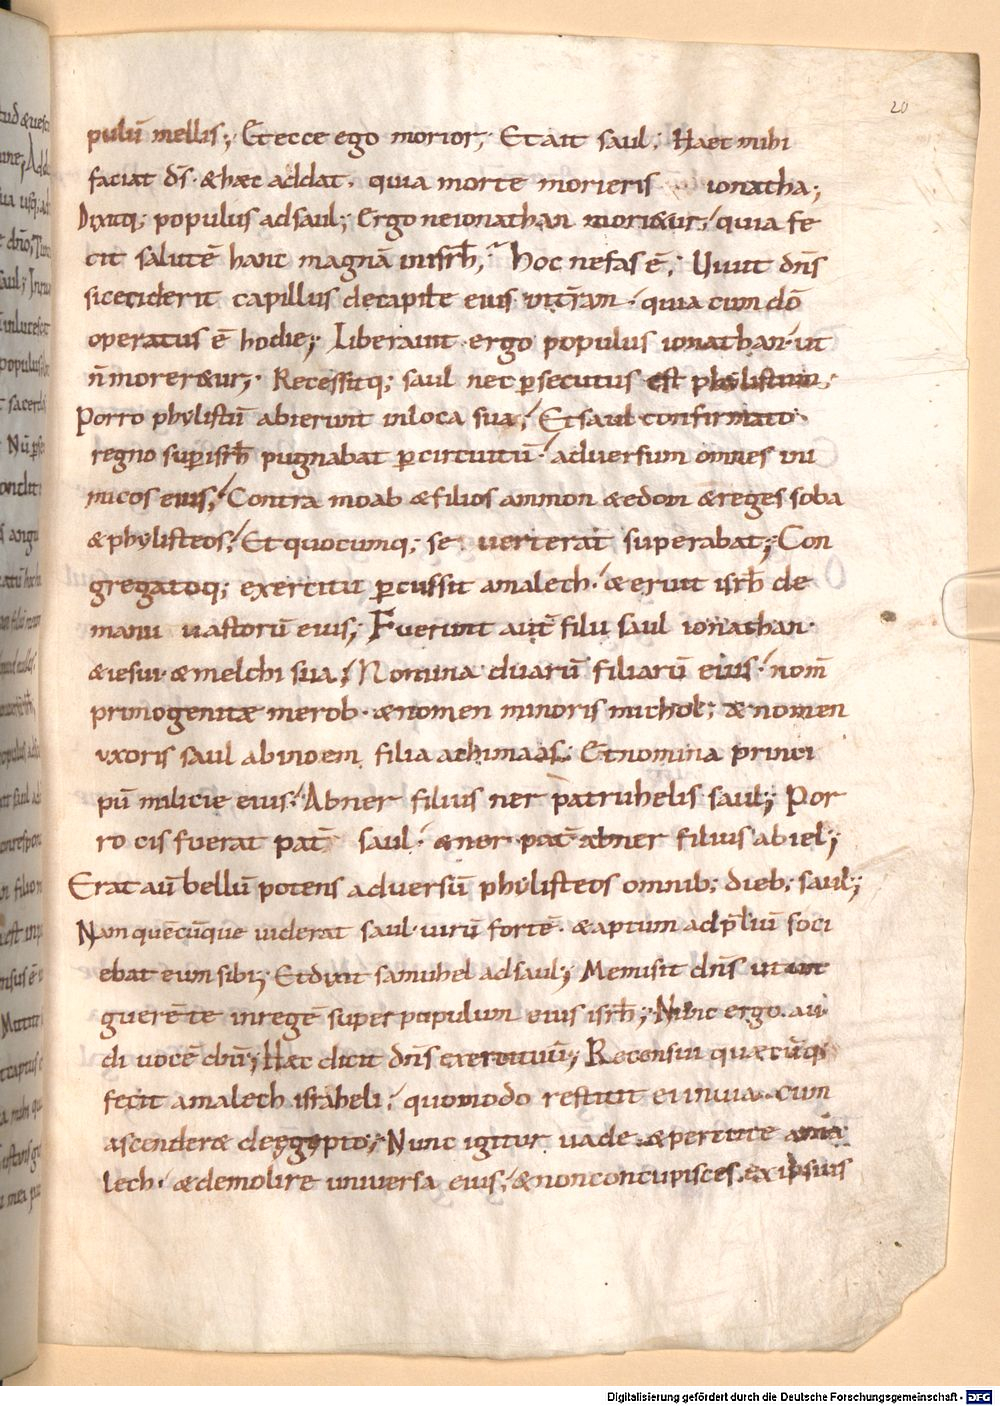 20
pulū mellis; Et ecce ego morior; Et ait saul; Haec mihi
faciat d̄s · & hæc addat · quia morte morieris ionatha;
Dixitq; populus ad saul; Ergo ne ionathan mori&ur; quia fe
cit salutē hanc magnā in isrl̄; Hoc nefas ē; Vivit dn̄s
si ceciderit capillus de capite eius in trām · quia cum dō
operatus ē hodie; Liberavit ergo populus ionathan · ut
n̄ morer&ur; Recessitq; saul nec ꝑsecutus est phylistiim;
Porro phylistiī abierunt in loca sua; Et saul confirmato
regno sup isrl̄ pugnabat ꝑ circuitū · adversum omnes ini
micos eius; Contra moab & filios ammon & edom & reges soba
& phylisteos; Et quocumq; se verterat superabat; Con
gregatoq; exercitu ꝑcussit amalech · & eruit isrl̄ de
manu vastorū eius; Fuerunt aut̄ filii saul ionathan ·
& iesui · & melchi sua; Nomina duarū filiarū eius · nom̄
primogenitæ merob · & nomen minoris michol; & nomen
uxoris saul abinoem filia achimaas; Et nomina princi
pū milicie eius; Abner filius ner patruhelis saul; Por
ro cis fuerat pat̄ saul · & ner pat̄ abner filius abiel;
Erat aū bellū potens adversū phylisteos omnib; dieb; saul;
Nam quēcūque viderat saul · virū fortē · & aptum ad p̄liū soci
ebat eum sibi; Et dixit samuhel ad saul; Me misit dn̄s ut un
guerē te in regē super populum eius isrl̄; Nunc ergo audi
di vocē dn̄i; Hæc dicit dn̄s exercituū; Recensui quæcūq;
fecit amalech israheli · quomodo restitit ei in via · cum
ascender& de egypto; Nunc igitur vade · & percute ama
lech · & demolire universa eius; & non concupisces ex ipsius
Digitalisierung gefördert durch die Deutsche Forschungsgemeinschaft - DFG